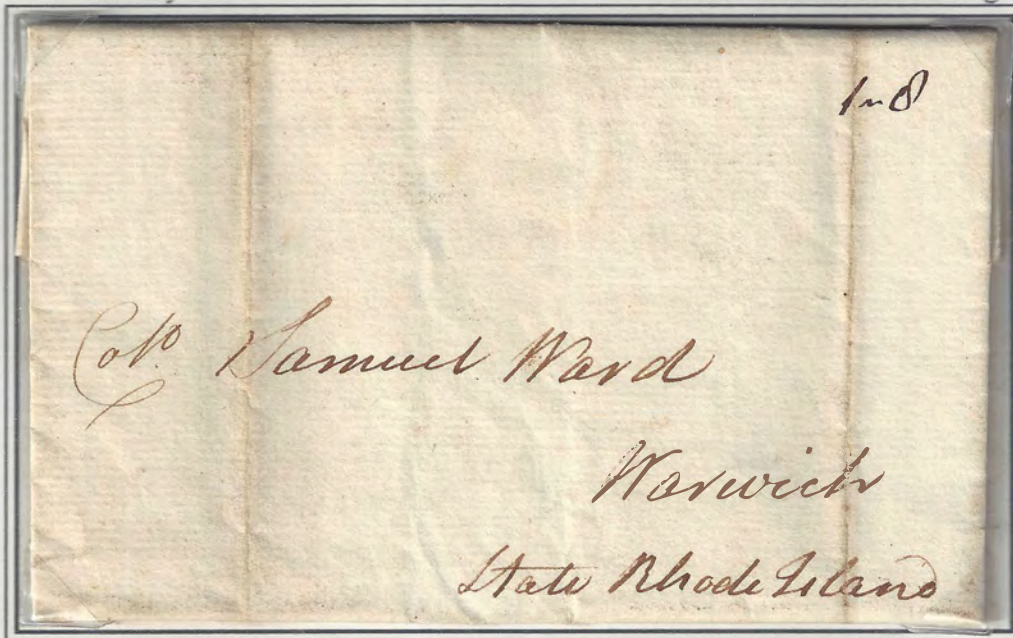 1n8
Colo. Samuel Ward
Warwick
State Rhode Island